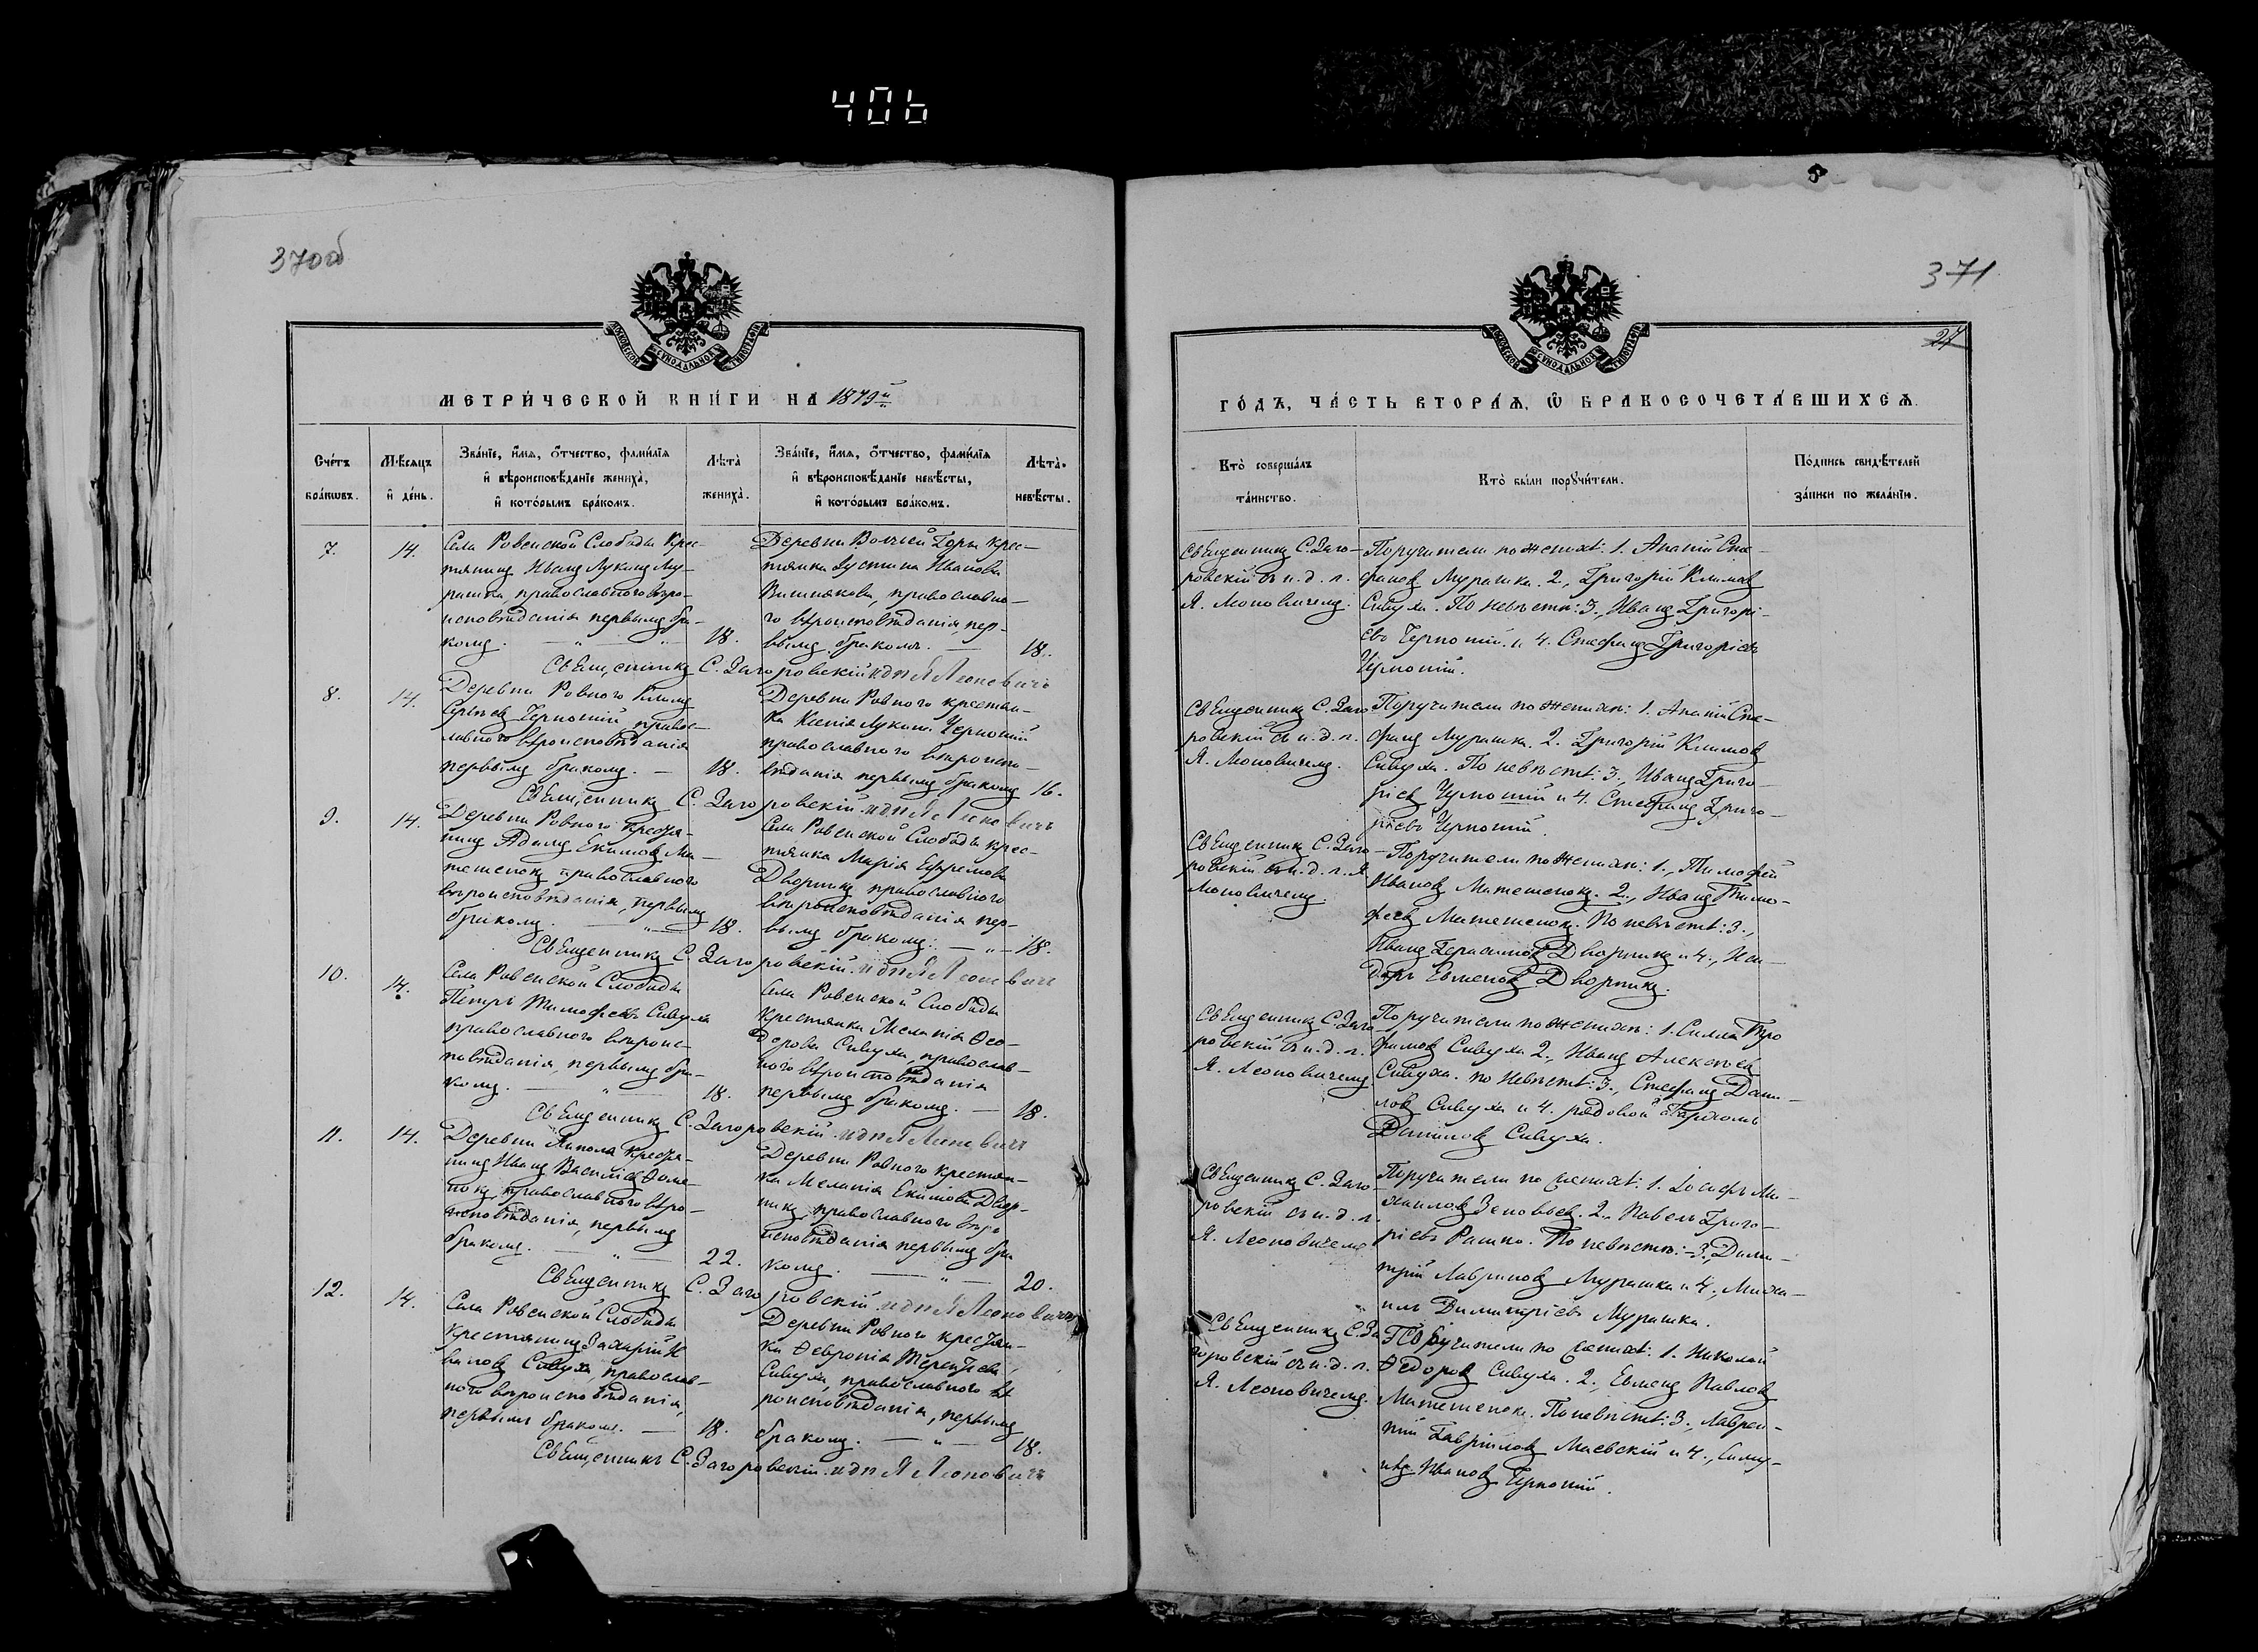 406
370об
МЕТРИЧЕСКОЙ КНИГИ НА 1879й
Счетъ браковъ.
Мѣсяцъ и день.
Званіе, имя, отчество, фамилія
и вѣроисповѣданіе жениха,
и которымъ бракомъ.
Лѣта
жениха.
Званіе, имя, отчество, фамилія
и вѣроисповѣданіе невѣсты,
и которымъ бракомъ.
Лѣта
невѣсты.
7.
14.
Села Ровенской Слободы Крес-
тянинъ Иванъ Лукинъ Му-
рашка, православного вѣро-
исповѣданія первымъ бра-
комъ.
18.
Деревни Волчьей Горы крес-
тянка Іустина Иванова
Вишнякова, православно-
го вѣроисповѣданія, пер-
вымъ бракомъ.
18.
Священникъ С. Загоровскій и д п Я Леоновичъ
8.
14.
Деревни Ровного Климъ
Сергѣевъ Чернотій правос-
лавного вѣроисповѣданія
первымъ бракомъ.
18.
Деревни Ровного крестян-
ка Ксенія Лукина Чернотій
православного вѣроиспо-
вѣданія первымъ бракомъ
16.
Священникъ С. Загоровскій и д п Я Леоновичъ
9.
14.
Деревни Ровного крестя-
нинъ Адамъ Екимовъ Ма-
тешенокъ православного
вѣроисповѣданія, первымъ
бракомъ.
18.
Села Ровенской Слободы крес-
тянка Марія Ефремова
Дворникъ православного
вѣроисповѣданія пер-
вымъ бракомъ.
18.
Священникъ С. Загоровскій и д п Я Леоновичъ
10.
14.
Села Ровенской Слободы
Петръ Тимофеевъ Сивуха
православного вѣроис-
повѣданія, первымъ бра-
комъ.
18.
Села Ровенской Слободы
крестянка Меланія Ѳео-
дорова Сивуха, православ-
ного вѣроисповѣданія
первымъ бракомъ.
18.
Священникъ С. Загоровскій и д п Я Леоновичъ
11.
14.
Деревни Крестя-
нинъ Иванъ Василіевъ
православного вѣро-
исповѣданія, первымъ
бракомъ.
22.
Деревни Ровного крестян-
ка Меланія Екимова Двор-
никъ православного вѣро
исповѣданія первымъ бра
комъ.
20.
Священникъ С. Загоровскій и д п Я Леоновичъ
12.
14.
Села Ровенской Слободы
Крестянинъ Захарій И
вановъ Сивуха, православ-
ного вѣроисповѣданія,
первымъ бракомъ.
18.
Деревни Ровного крестян-
ка Ѳевронія Терентіева
Сивуха, православного вѣ
роисповѣданія, первымъ
бракомъ.
18.
Священникъ С. Загоровскій и д п Я Леоновичъ
371
27
ГОДЪ, ЧАСТЬ ВТОРАЯ, Ѡ БРАКОСОЧЕТАВШИХСЯ.
Кто совершалъ
таинство.
Кто были поручители.
Подпись свидѣтелей
записи по желанію.
Священникъ С. Заго-
ровскій съ и. д. п.
Я. Леоновичемъ.
Поручители по женихѣ: 1. Ананій Сте-
фановъ Мурашка. 2., Григорій Климовъ
Сивуха. По невѣстѣ: 3., Иванъ Григорі-
евъ Чернотій. и 4. Стефанъ Григоріевъ
Чернотій.
Священникъ С. Заго
ровскій съ и. д. п.
Я. Леоновичемъ.
Поручители по женихѣ: 1. Ананій Сте-
фанъ Мурашка. 2. Григорій Климовъ
Сивуха. По невѣстѣ: 3., Иванъ Григо-
ріевъ Чернотій и 4. Стефанъ Григо-
ріевъ Чернотій.
Священникъ С. Заго-
ровскій съ и. д. п. Я.
Леоновичемъ.
Поручители по женихѣ: 1., Тимофей
Ивановъ Матешенокъ. 2., Иванъ Тимо-
феевъ Матешенокъ. По невѣстѣ: 3.,
Иванъ Герасимовъ Дворникъ и 4., Иси-
доръ Евменовъ Дворникъ.
Священникъ С. Заго
ровскій съ и. д. п.
Я. Леоновичемъ
Поручители по женихѣ: 1. Силла Тро
фимовъ Сивуха 2., Иванъ Алексѣевъ
Сивуха. по невѣстѣ: 3., Стефанъ Дани-
ловъ Сивуха и 4. рядовой Пархомъ
Даниловъ Сивуха.
Священникъ С. Заго
ровскій съ и. д. п.
Я. Леоновичемъ
Поручители по женихѣ: 1. Іосифъ Ми-
хаиловъ Зеновьевъ. 2., Павелъ Григо-
ріевъ Рашко. По невѣстѣ: 3., Дими-
трій Лавриновъ Мурашка и 4., Миха-
илъ Димитріевъ Мурашка.
Священникъ С. За
горовскій съ и. д. п.
Я. Леоновичемъ.
Поручители по женихѣ: 1. Николай
Ѳедоровъ Сивуха. 2., Евменъ Павловъ
Матешенокъ. По невѣстѣ: 3., Лаврен-
тій Гавріиловъ Маевскій и 4.,
Ивановъ Чернотій.